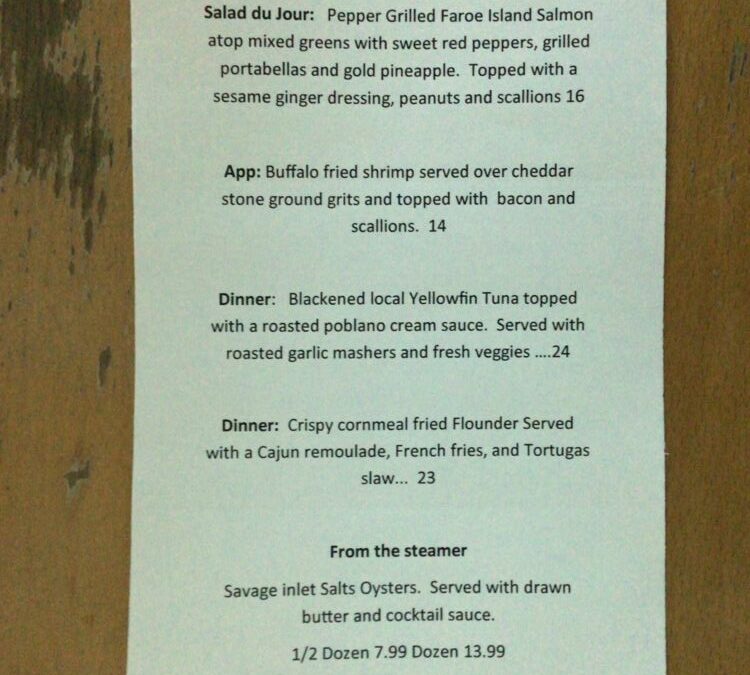 Salad du Jour: Pepper Grilled Faroe Island Salmon
atop mixed greens with sweet red peppers, grilled
portabellas and gold pineapple. Topped with a
sesame ginger dressing, peanuts and scallions 16
App: Buffalo fried shrimp served over cheddar
stone ground grits and topped with bacon and
scallions. 14
Dinner: Blackened local Yellowfin Tuna topped
with a roasted poblano cream sauce. Served with
roasted garlic mashers and fresh veggies ....24
Dinner: Crispy cornmeal fried Flounder Served
with a Cajun remoulade, French fries, and Tortugas
slaw... 23
From the steamer
Savage inlet Salts Oysters. Served with drawn
butter and cocktail sauce.
1/2 Dozen 7.99 Dozen 13.99